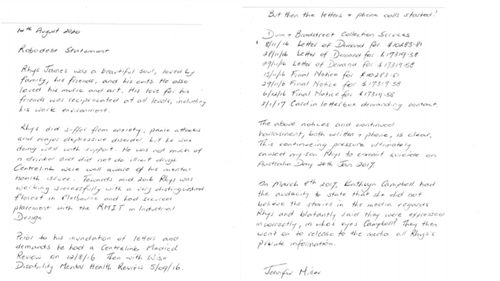 10th August 2020
Robodebt Statement
Rhys James was a beautiful soul, loved by
family, his friends, and his cats. He also
loved his music and art. His love for his
friends was reciprocated at all levels, including
his work environment.
Rhys did suffer from anxiety, panic attacks
and major depressive disorder, but he was
doing well with support. He was not much of
a drinker and did not do illicit drugs.
Centrelink were well aware of his mental
health issues. Towards mid 2016 Rhys was
working successfully with a very distinguished
florist in Melbourne and had secured
placement with the RMIT in Industrial
Design.
Prior to his inundation of letters and
demands he had a Centrelink Medical
Review on 12/8/16 then with
Disability Mental Health Review 5/09/16.
But then the letters & phone calls started!
Dun & Bradstreet Collection Services
8/11/16 Letter of Demand for
28/11/16 Letter of Demand for $17319.58
29/11/16 Letter of Demand for $17319.58
Final Notice for
Final Notice for $17319.58
Final Notice for $17319.58
2/1/17 Card in letterbox demanding contact.
The above notices and continued
harassment, both written & phone, is clear.
This continuing pressure ultimately
caused my son Rhys to commit suicide on
Australia Day 26th Jan 2017.
On March 8th 2017, Kathryn Campbell had
the audacity to state that she did not
believe the stories in the media regards
Rhys and blatantly said they were expressed
incorrectly, in whos eyes Campbell. They then
went on to release to the media all Rhys's
private information.
Jennifer Miller